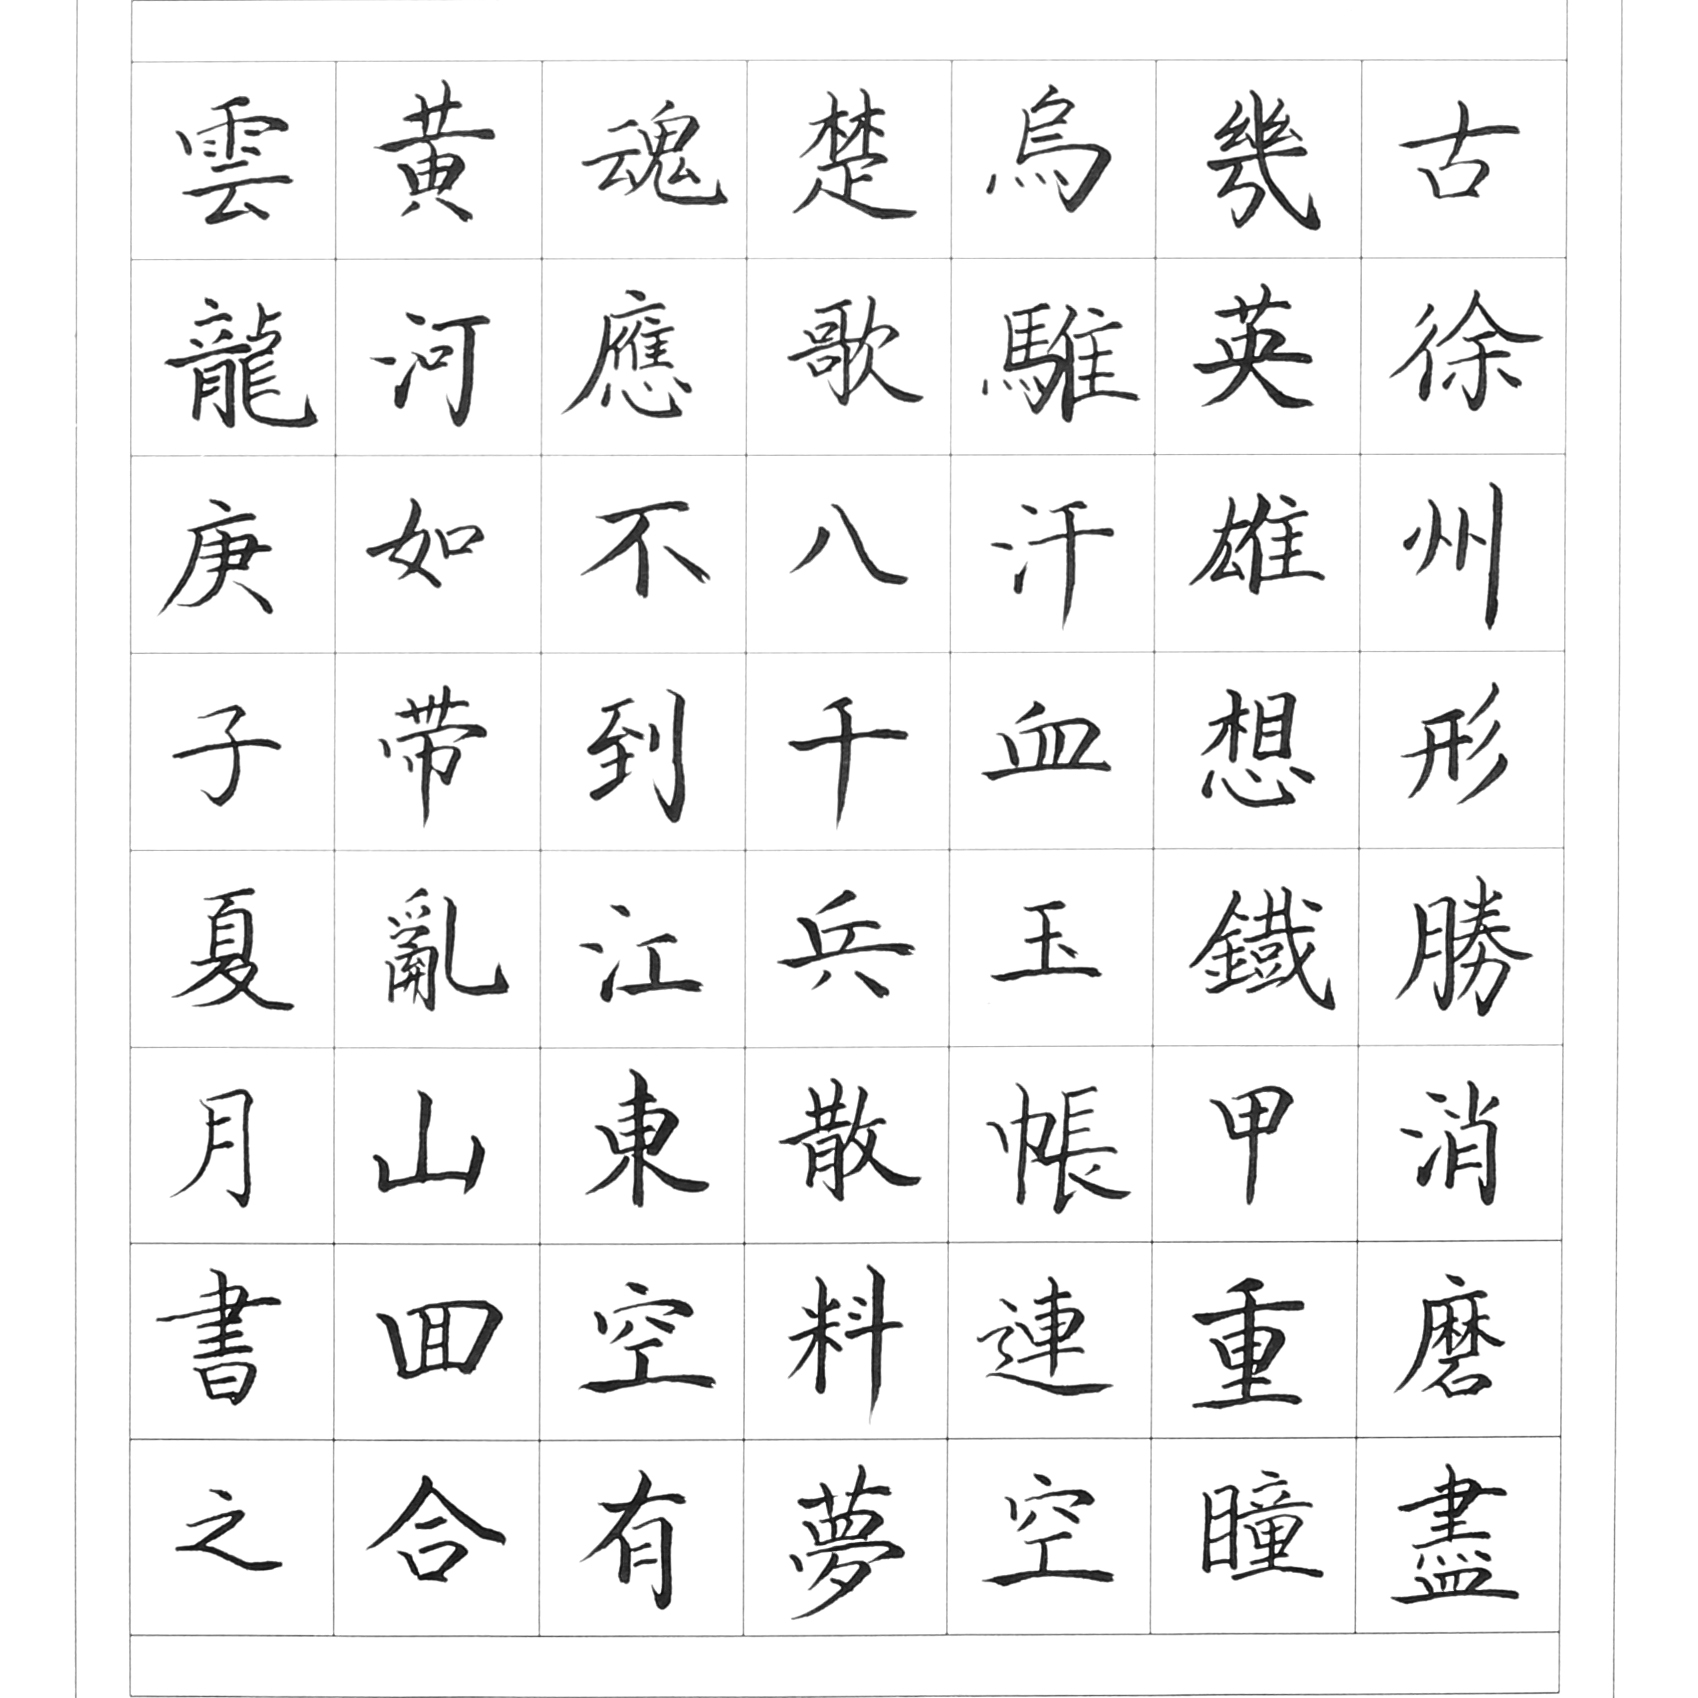 古徐州形勝消磨盡
幾英雄想鐵甲重瞳
烏騅汗血玉帳連空
楚歌八千兵散料夢
魂應不到江東空有
黃河如带亂山回合
雲龍庚子夏月書之